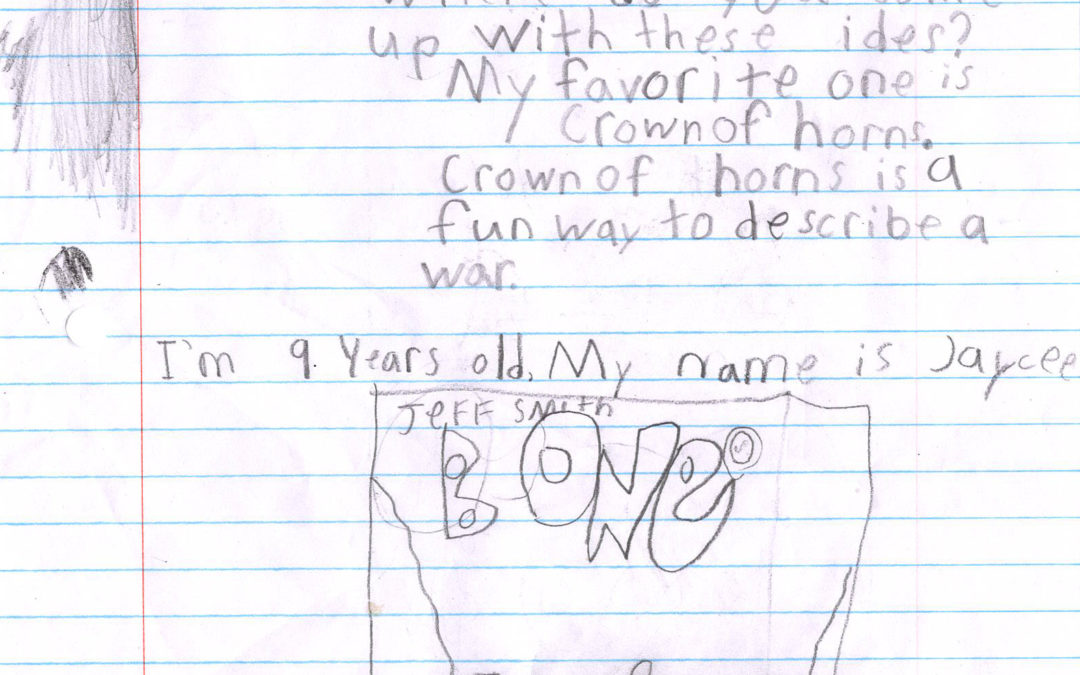 up with these ides?
My favorite one is
Crown of horns.
Crown of horns is a
fun way to describe a
war.
I'm 9. Years old. My name is Jaycee
JeFF Smith
BONE